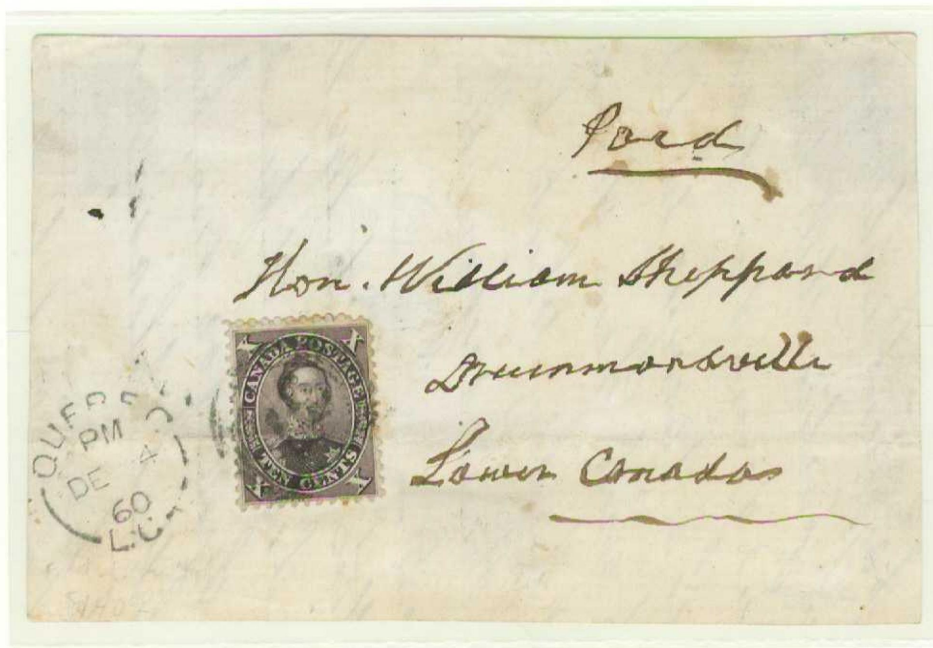 Paid
Hon. William Sheppard
Drummondville
Lower Canada
X X
CANADA POSTAGE
TEN CENTS
X X
QUEBEC
PM
DE 4
60
L.C